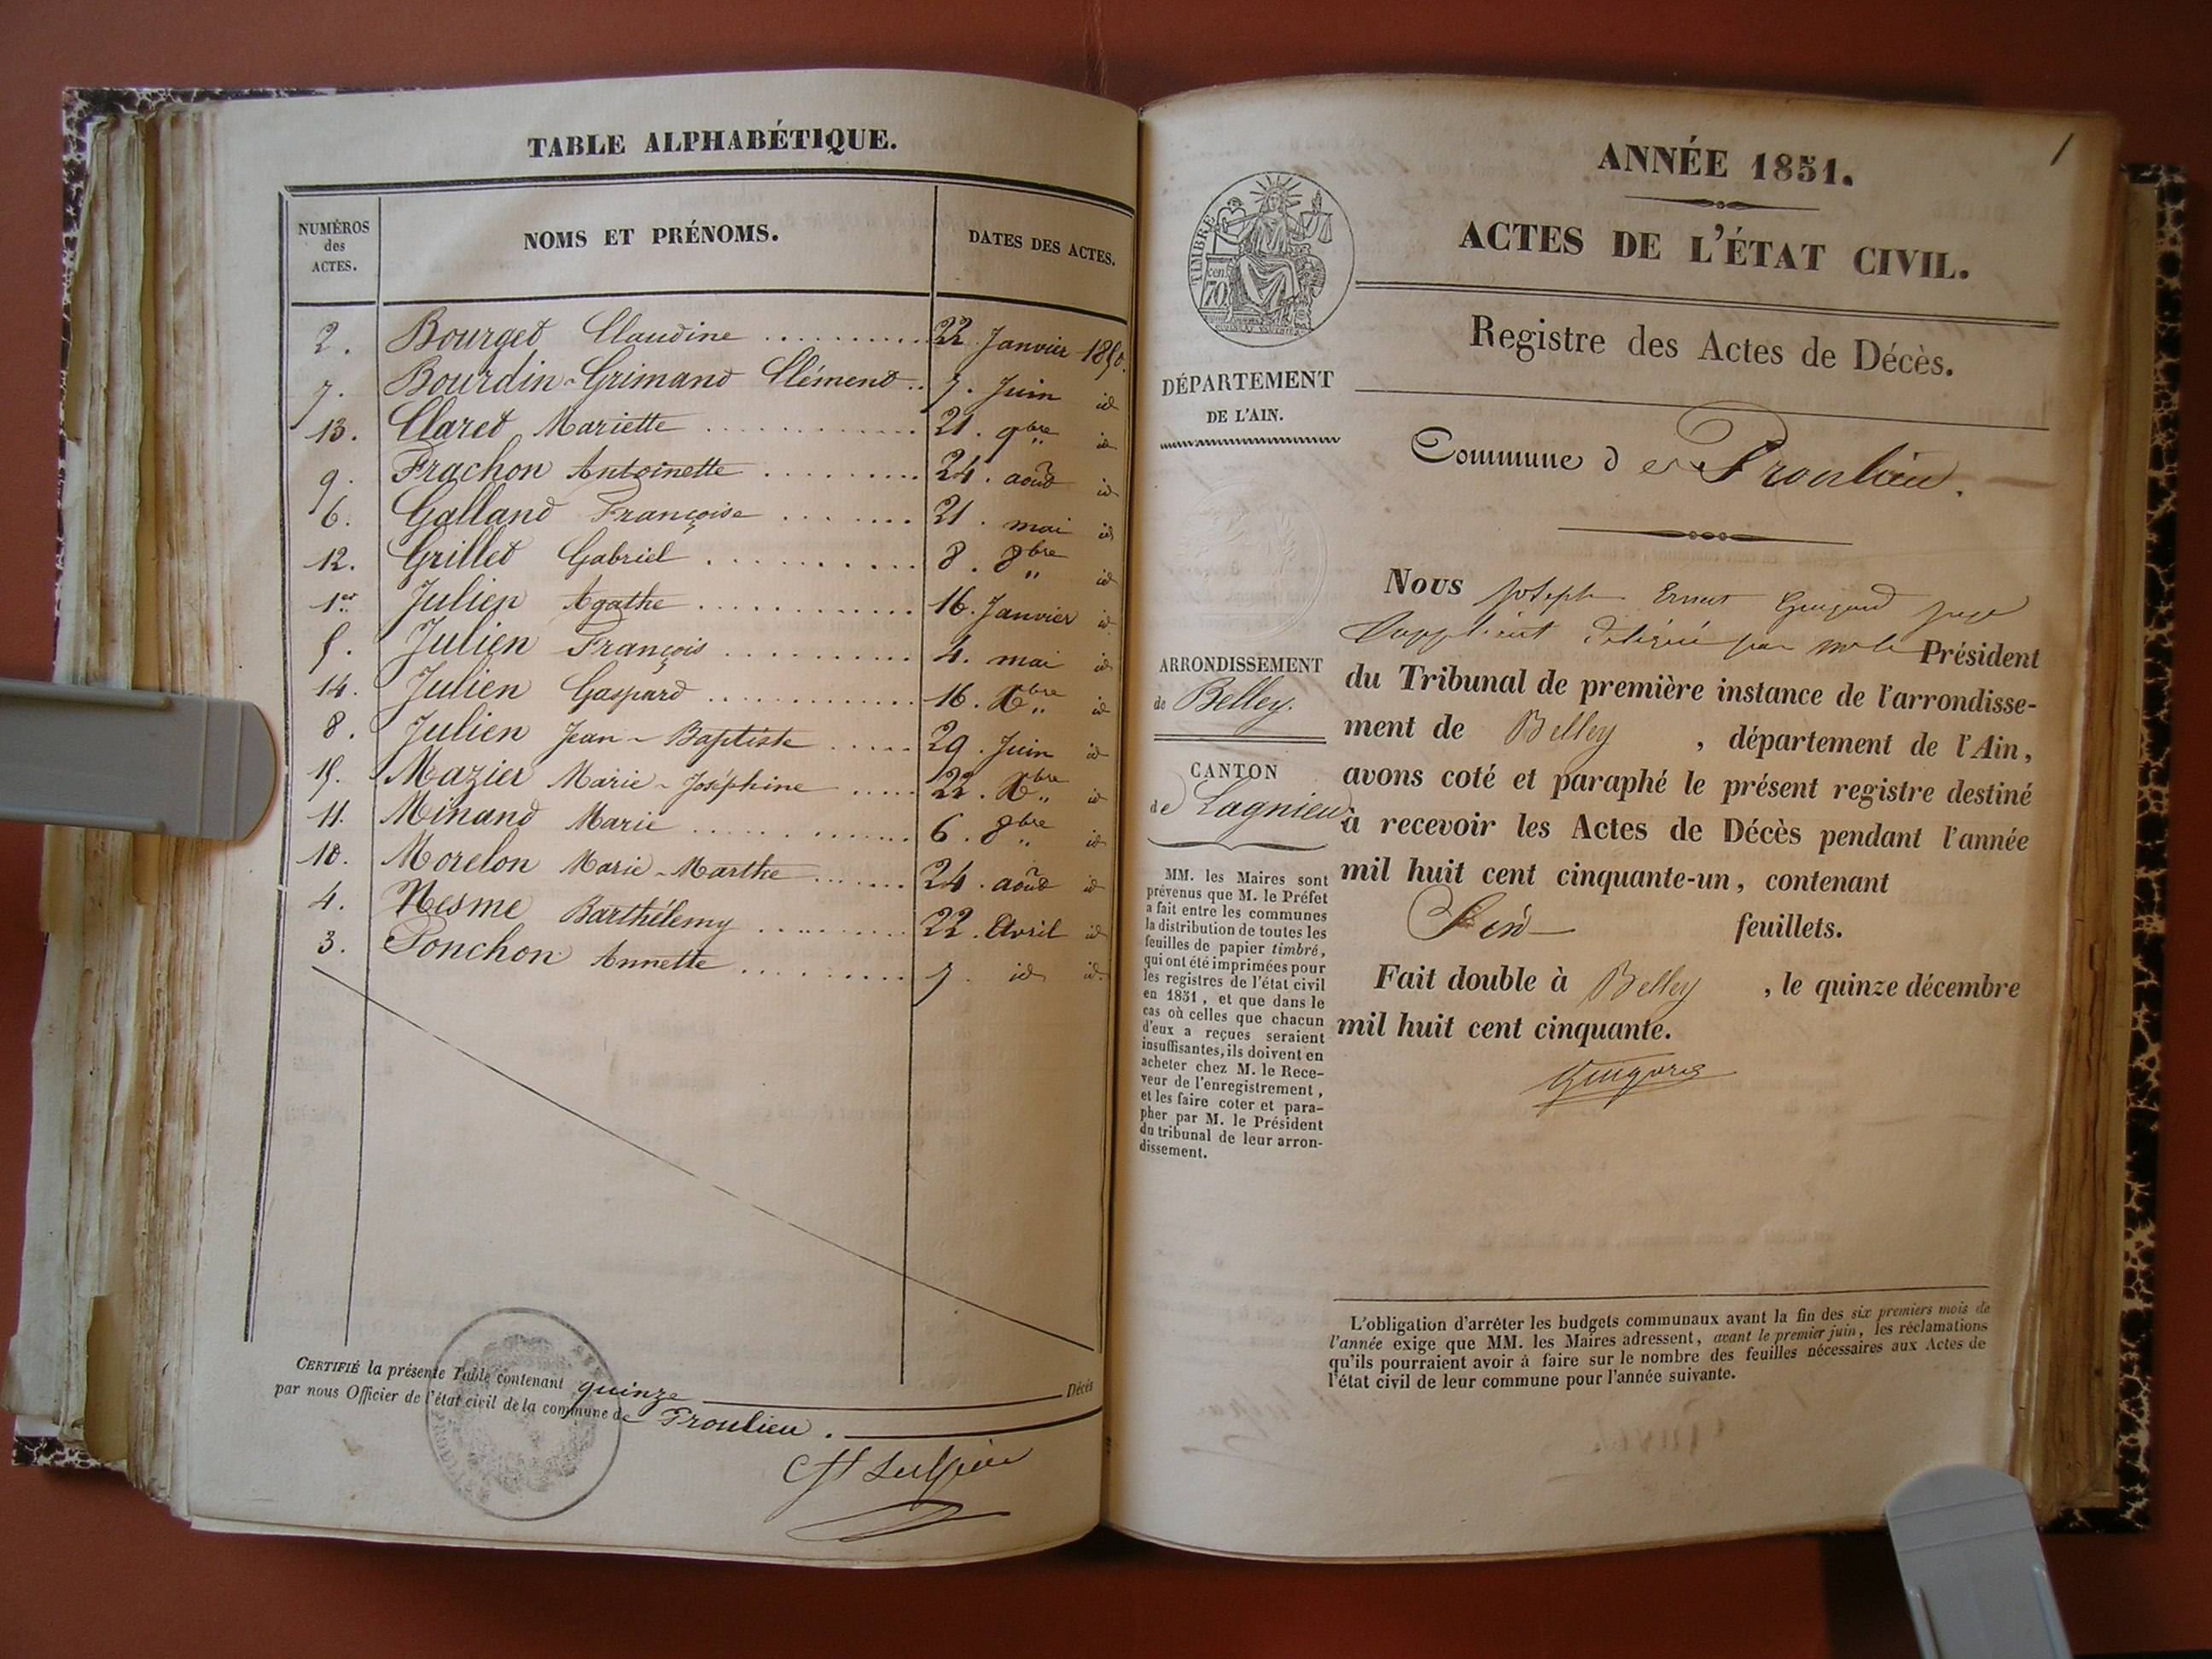 TABLE ALPHABÉTIQUE.
NUMÉROS
des
ACTES.
NOMS ET PRÉNOMS.
DATES DES ACTES.
2. Bourget Claudine .......... 22. Janvier 1850.
7. Bourdin-Grimand Clément .. 7. Juin id
13. Claret Mariette ............ 21. 9bre id
9. Frachon Antoinette ......... 24. août id
6. Galland Françoise ....... 21. mai id
12. Grillet Gabriel .......... 8. 8bre id
1er Julien Agathe ............ 16. Janvier id
5. Julien François .......... 4. mai id
14. Julien Gaspard ............ 16. Xbre id
8. Julien Jean-Baptiste ..... 29. Juin id
15. Mazier Marie-Joséphine ..... 22. Xbre id
11. Minand Marie ............ 6. 8bre id
10. Morelon Marie-Marthe ....... 24. août id
4. Nesme Barthélemy ......... 22. Avril id
3. Ponchon Annette ......... 7. id id
CERTIFIÉ la présente Table contenant quinze Décès
par nous Officier de l'état civil de la commune de Proulieu.
1
ANNÉE 1851.
ACTES DE L'ÉTAT CIVIL.
TIMBRE
70 cent
Registre des Actes de Décès.
DÉPARTEMENT
DE L'AIN.
Commune de Proulieu.
Nous Joseph Ernest juge
Suppléant délégué par mr le Président
du Tribunal de première instance de l'arrondisse-
ment de Belley, département de l'Ain,
avons coté et paraphé le présent registre destiné
à recevoir les Actes de Décès pendant l'année
mil huit cent cinquante-un, contenant
feuillets.
Fait double à Belley, le quinze décembre
mil huit cent cinquante.
ARRONDISSEMENT
de Belley.
CANTON
de Lagnieu
MM. les Maires sont
prévenus que M. le Préfet
a fait entre les communes
la distribution de toutes les
feuilles de papier timbré,
qui ont été imprimées pour
les registres de l'état civil
en 1851, et que dans le
cas où celles que chacun
d'eux a reçues seraient
insuffisantes, ils doivent en
acheter chez M. le Rece-
veur de l'enregistrement,
et les faire coter et para-
pher par M. le Président
du tribunal de leur arron-
dissement.
L'obligation d'arrêter les budgets communaux avant la fin des six premiers mois de
l'année exige que MM. les Maires adressent, avant le premier juin, les réclamations
qu'ils pourraient avoir à faire sur le nombre des feuilles nécessaires aux Actes de
l'état civil de leur commune pour l'année suivante.